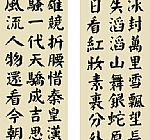 冰封萬里雪飄望
失滔滔山舞銀蛇原
日看紅妝素裹分外
雄競折腰惜秦皇漢
騷一代天驕成吉思
風流人物還看今朝